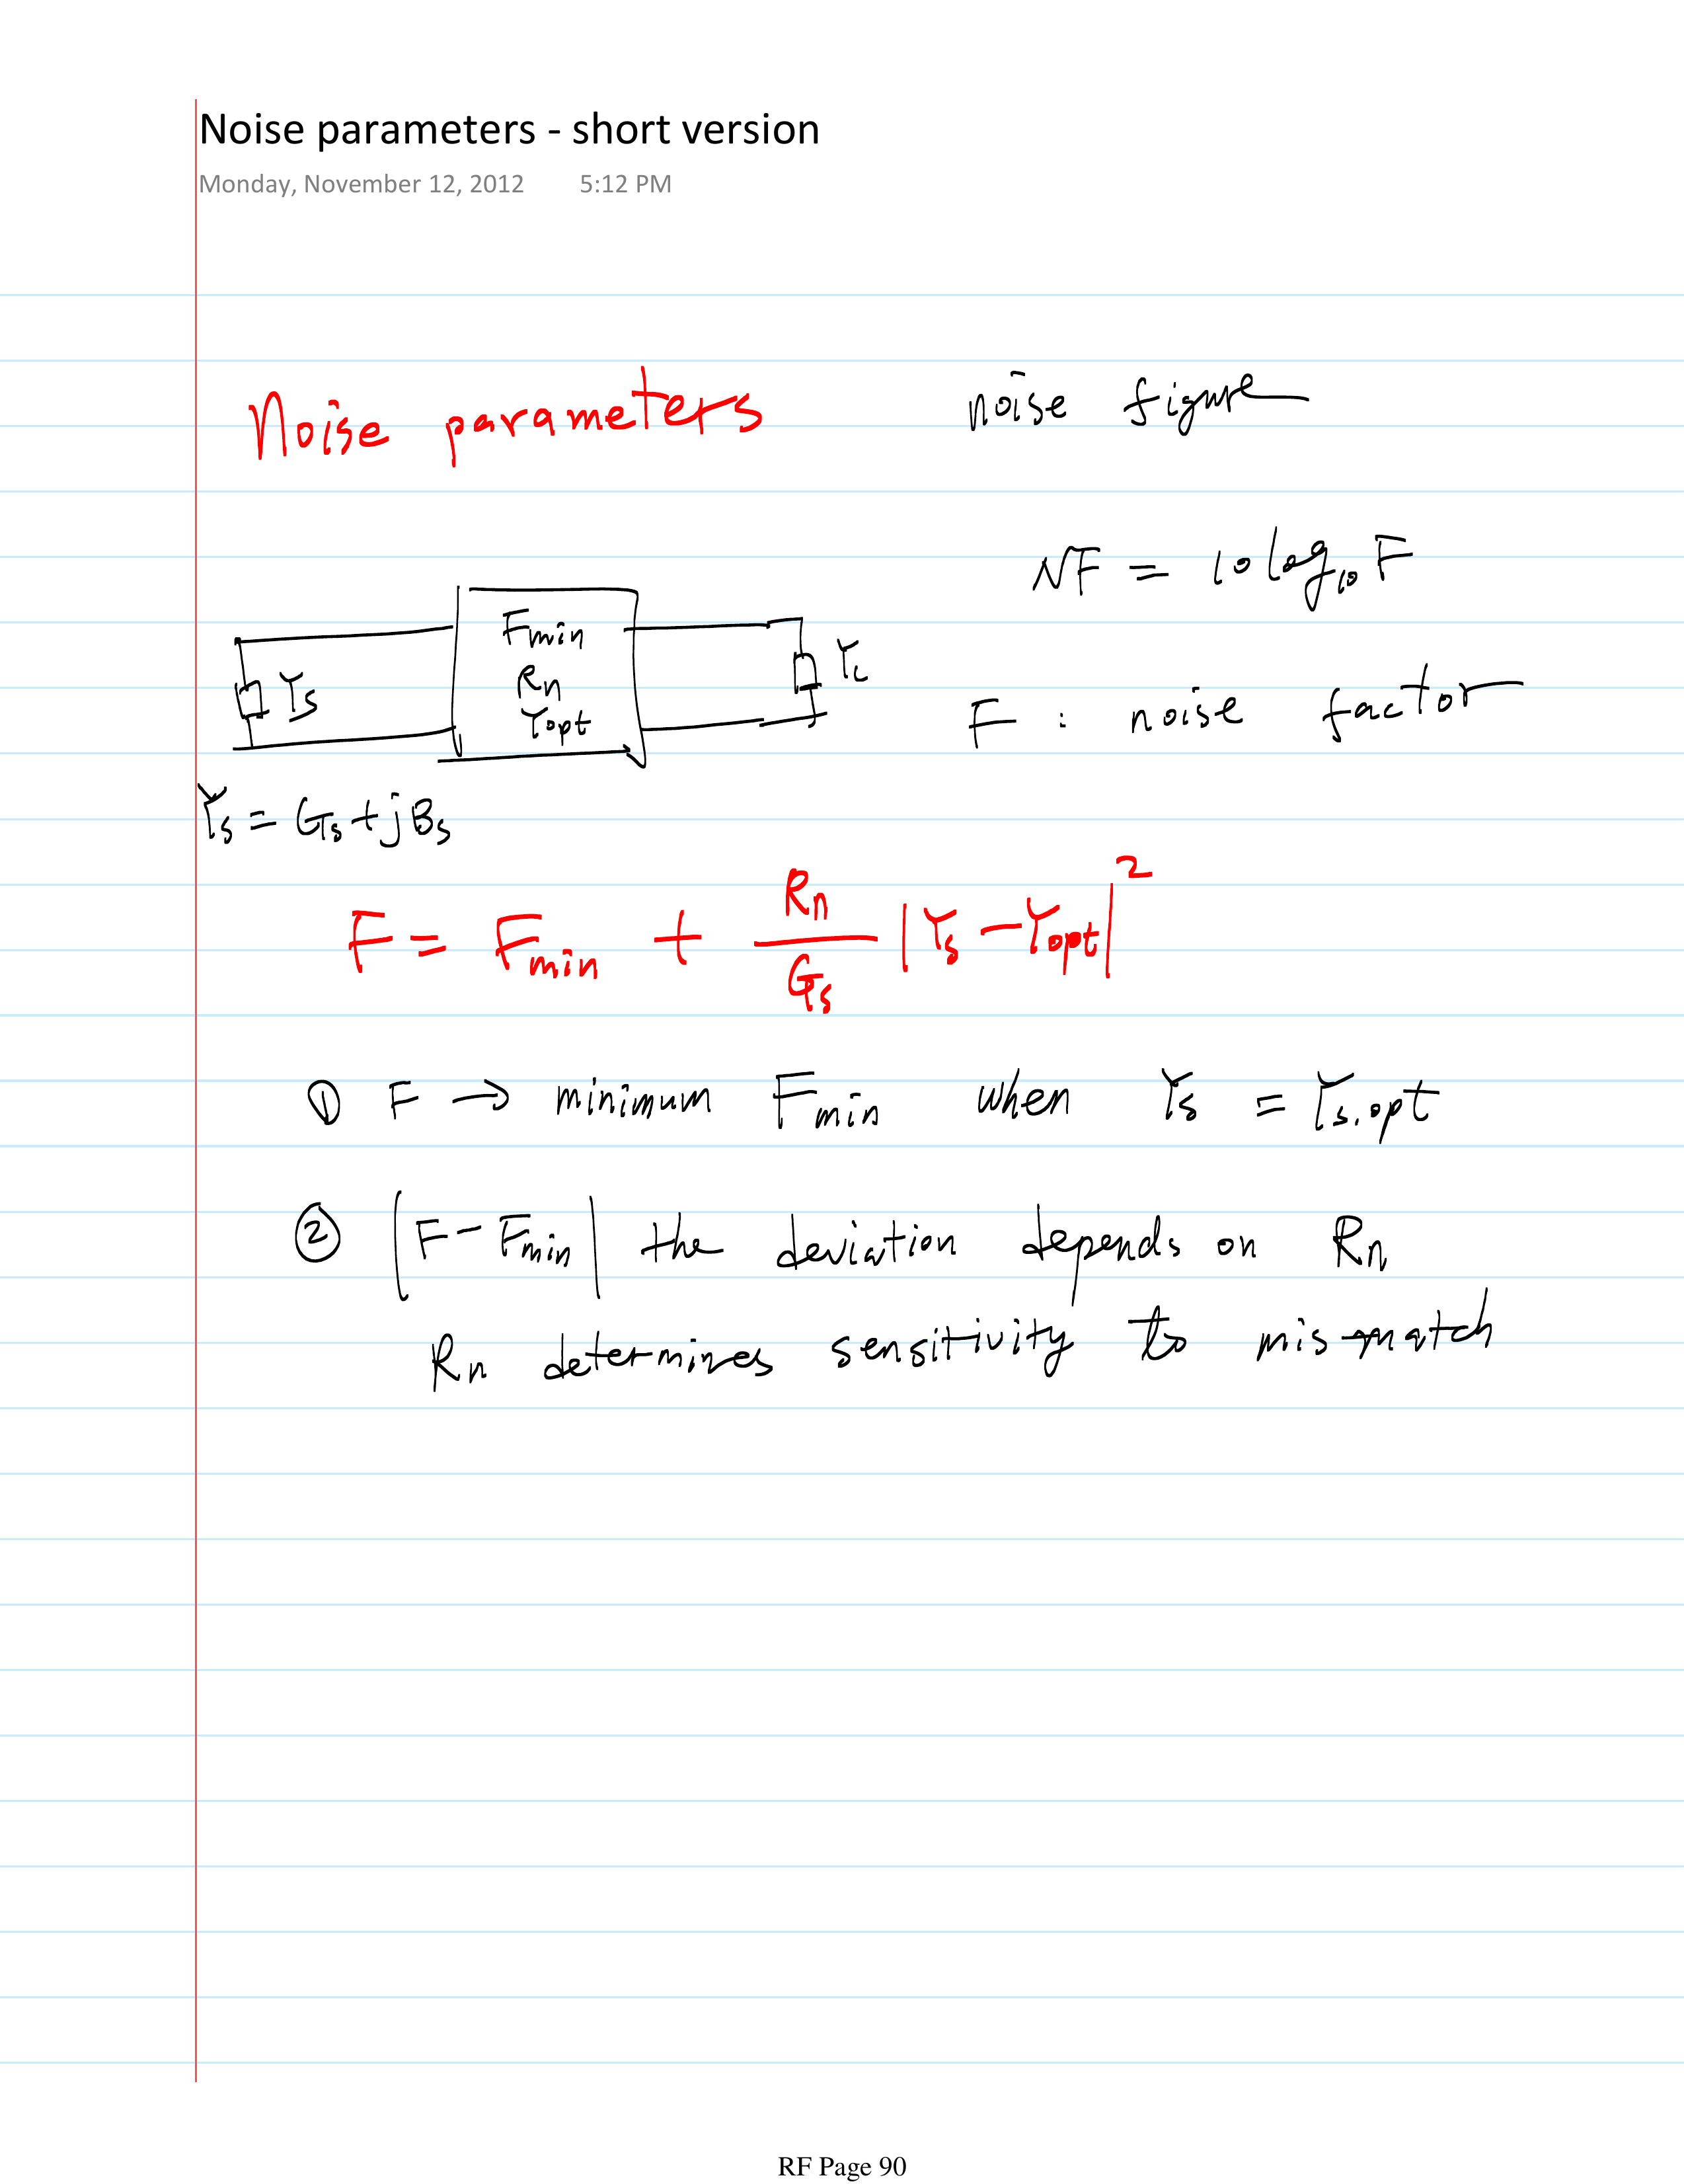 Noise parameters - short version
Monday, November 12, 2012 5:12 PM
Noise parameters
noise figure
NF = 10 log₁₀ F
F : noise factor
Fmin
Rn
Yopt
Ys
YL
Ys = Gs + jBs
F = Fmin + Rn/Gs |Ys - Yopt|²
① F → minimum Fmin when Ys = Ys.opt
② |F - Fmin| the deviation depends on Rn
Rn determines sensitivity to mis-match
RF Page 90